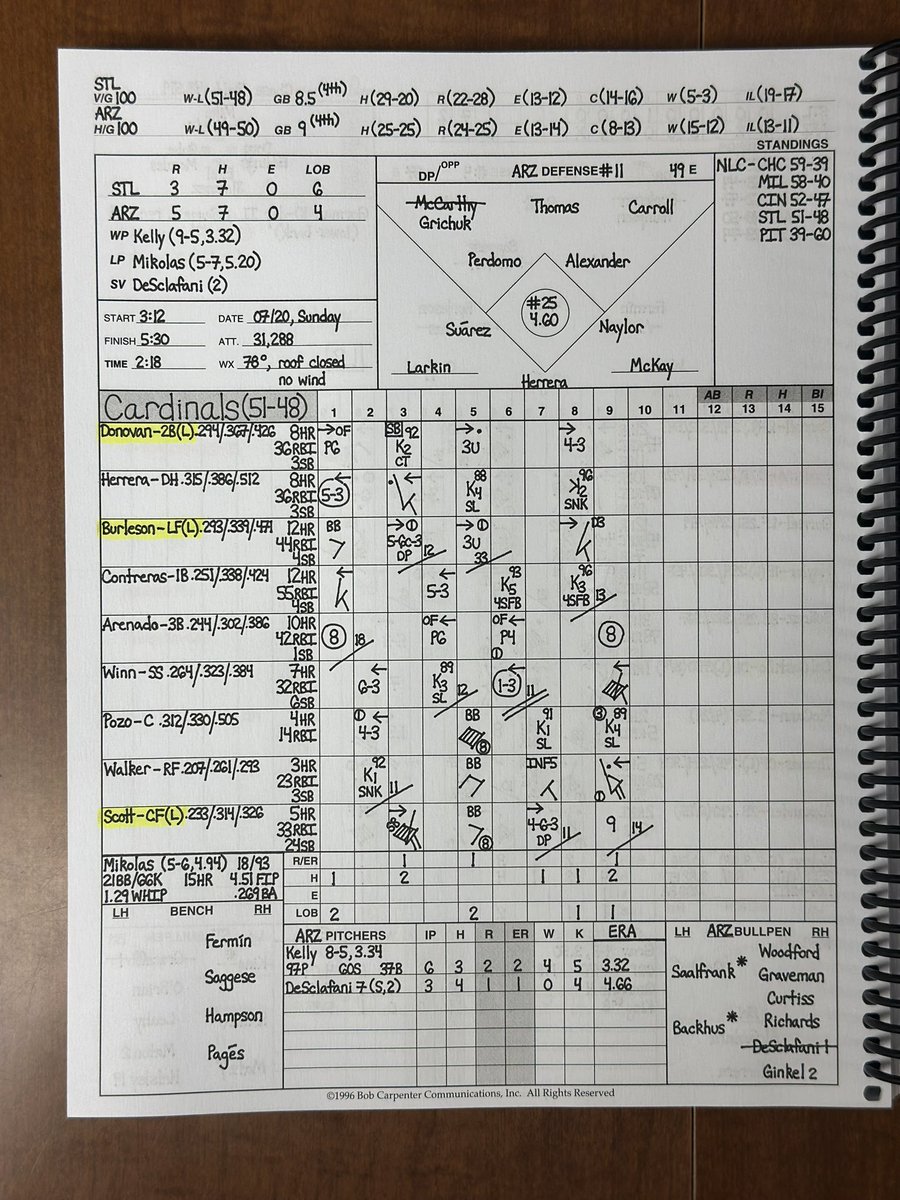 STL
V/G 100 W-L (51-48) GB 8.5 (4th) H (29-20) R (22-28) E (13-12) C (14-16) W (5-3) IL (19-17)
ARZ
H/G 100 W-L (49-50) GB 9 (4th) H (25-25) R (24-25) E (13-14) C (8-13) W (15-12) IL (13-11)
STANDINGS
NLC-CHC 59-39
MIL 58-40
CIN 52-47
STL 51-48
PIT 39-60
R H E LOB
STL 3 7 0 6
ARZ 5 7 0 4
WP Kelly (9-5,3.32)
LP Mikolas (5-7,5.20)
SV DeSclafani (2)
START 3:12 DATE 07/20, Sunday
FINISH 5:30 ATT. 31,288
TIME 2:18 WX 78°, roof closed
no wind
DP/OPP ARZ DEFENSE #11 49 E
McCarthy Thomas Carroll
Grichuk
Perdomo Alexander
#25
4.60
Suárez Naylor
Larkin McKay
Herrera
AB R H BI
Cardinals (51-48) 1 2 3 4 5 6 7 8 9 10 11 12 13 14 15
Donovan-2B(L) .294/.367/.426 8HR →OF SB 92 →• →
36RBI PG K2 3U 4-3
3SB CT
Herrera-DH .315/.386/.512 8HR ← ← 88 96
36RBI 5-3 K4 K2
3SB SL SNK
Burleson-LF(L) .293/.339/.471 12HR BB →① →① → D3
44RBI 5-6c-3 3U
4SB DP 12 33
Contreras-1B .251/.338/.424 12HR ← ← 93 96
55RBI 5-3 K5 K3
4SB 4SFB 4SFB 13
Arenado-3B .244/.302/.386 10HR OF← OF←
42RBI 8 18 PG P4 8
1SB ①
Winn-SS .264/.323/.384 7HR ← 89 ← ←
32RBI 6-3 K3 1-3
6SB SL 12 11
Pozo-C .312/.330/.505 4HR ①← BB 91 ③ 89
14RBI 4-3 8 K1 K4
SL SL
Walker-RF .207/.261/.293 3HR 92 BB INF5 ←
23RBI K1
3SB SNK 11 ①
Scott-CF(L) .233/.314/.326 5HR → BB →
33RBI 4-6-3 9
24SB 8 DP 11 14
Mikolas (5-6,4.94) 18/93 R/ER 1 1 1
218B/66K 15HR 4.51 FIP H 1 2 1 1 2
1.29 WHIP .269 BA E
LH BENCH RH LOB 2 2 1 1
Fermín
Saggese
Hampson
Pagés
ARZ PITCHERS IP H R ER W K ERA
Kelly 8-5,3.34
97P 60S 37B 6 3 2 2 4 5 3.32
DeSclafani 7 (S,2) 3 4 1 1 0 4 4.66
LH ARZ BULLPEN RH
Woodford
Saalfrank* Graveman
Curtiss
Backhus* Richards
DeSclafani 1
Ginkel 2
©1996 Bob Carpenter Communications, Inc. All Rights Reserved